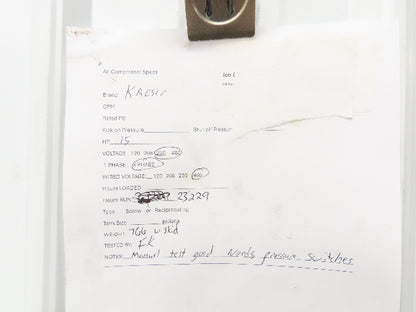 Air Compressor Specs Job
Brand: Kaeser
CFM
Rated PSI
Kick on Pressure Shut off Pressure
HP: 15
VOLTAGE 120 208 230 460
1 PHASE 3 PHASE
WIRED VOLTAGE 120 208 230 460
Hours LOADED
Hours RUN 23229
Type: Screw or Reciprocating
Tank Size gallons
WEIGHT: 766 w skd
TESTED BY: EK
NOTES: Manual test good Needs pressure switches